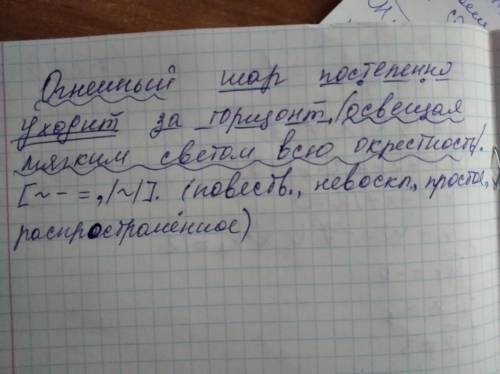 Огненный шар постепенно
уходит за горизонт,/освещая
мягким светом всю окрестность/.
[~ – =, /~/]. (повеств., невоскл., простое,
распространённое)